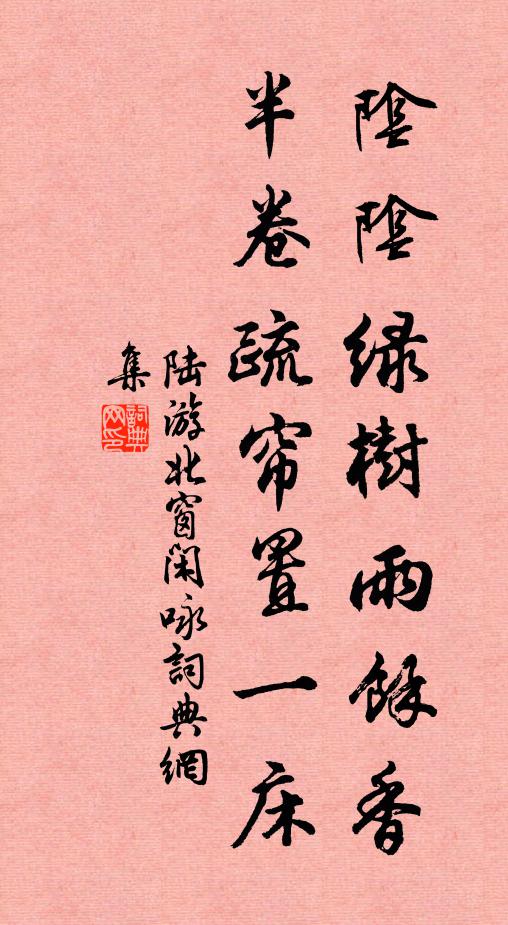 陰陰緑樹雨餘香
半卷疏帘置一床
陆游北窗閑咏詞典網
集
詞典網印